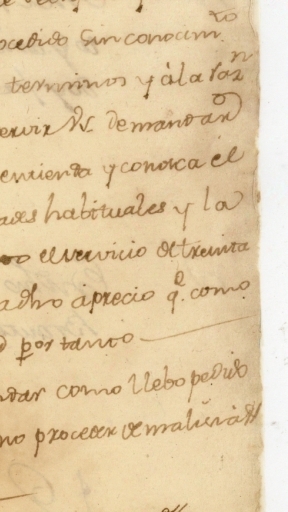 ocedido sin conocim.to
terminos y à la raz.n
servir Vs. demandar
entienda y conosca el
ades habituales y la
oo el servicio de treinta
adho á precio q.e como
por tanto
ndar como llebo pedido
no proceder de malicia